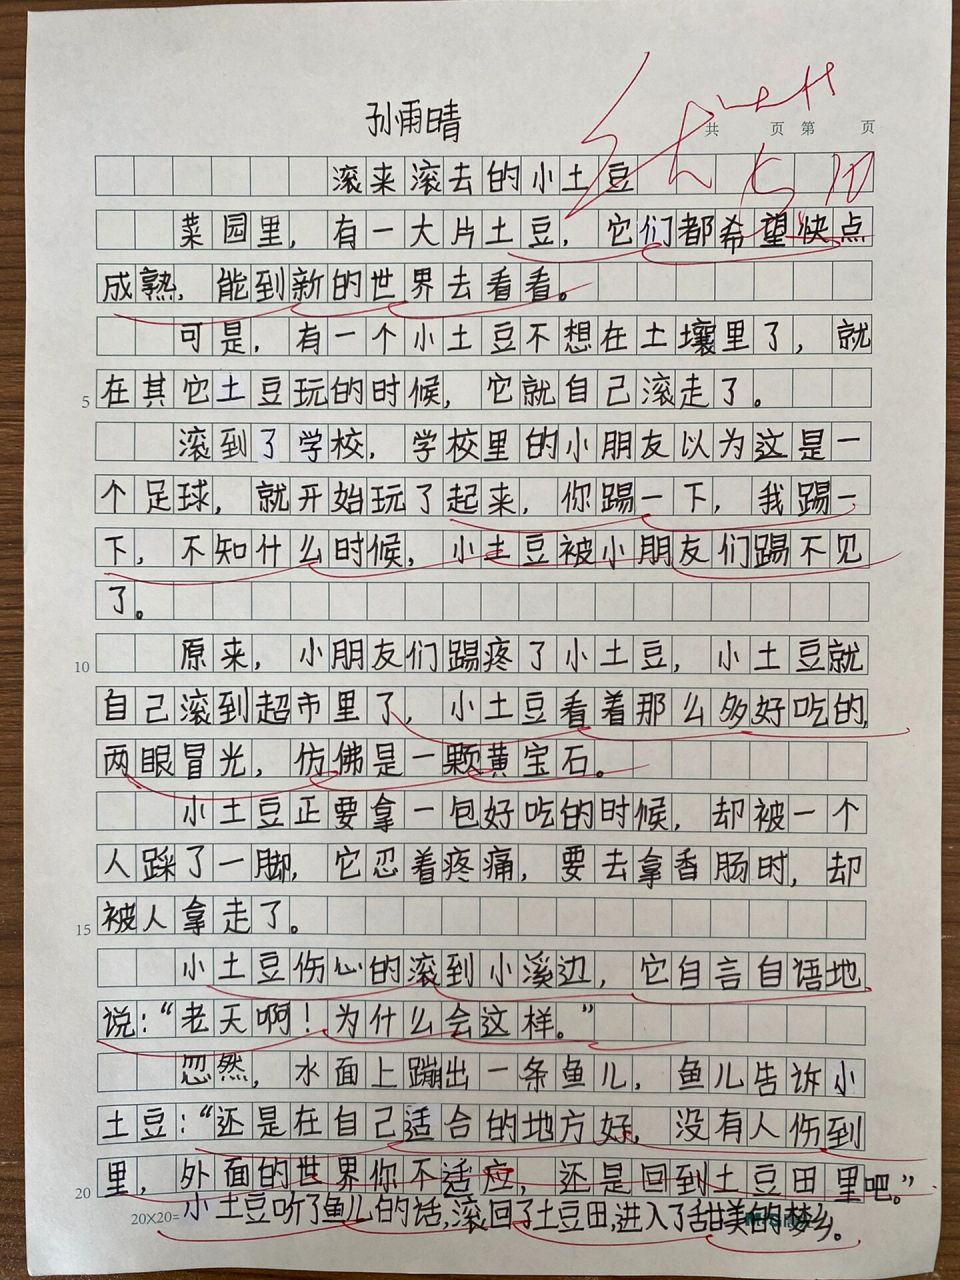 孙雨晴
共 页 第 页
滚来滚去的小土豆
菜园里，有一大片土豆，它们都希望快点
成熟，能到新的世界去看看。
可是，有一个小土豆不想在土壤里了，就
5 在其它土豆玩的时候，它就自己滚走了。
滚到了学校，学校里的小朋友以为这是一
个足球，就开始玩了起来，你踢一下，我踢一
下，不知什么时候，小土豆被小朋友们踢不见
了。
10 原来，小朋友们踢疼了小土豆，小土豆就
自己滚到超市里了，小土豆看着那么多好吃的，
两眼冒光，仿佛是一颗黄宝石。
小土豆正要拿一包好吃的时候，却被一个
人踩了一脚，它忍着疼痛，要去拿香肠时，却
15 被人拿走了。
小土豆伤心的滚到小溪边，它自言自语地
说：“老天啊！为什么会这样。”
忽然，水面上蹦出一条鱼儿，鱼儿告诉小
土豆：“还是在自己适合的地方好，没有人伤到
20 里，外面的世界你不适应，还是回到土豆田里吧。”
20×20= 小土豆听了鱼儿的话，滚回了土豆田，进入了甜美的梦乡。